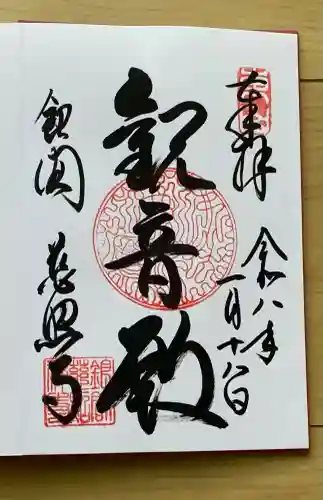 奉拝
令八年
一月十八日
觀音殿
銀閣
慈照寺